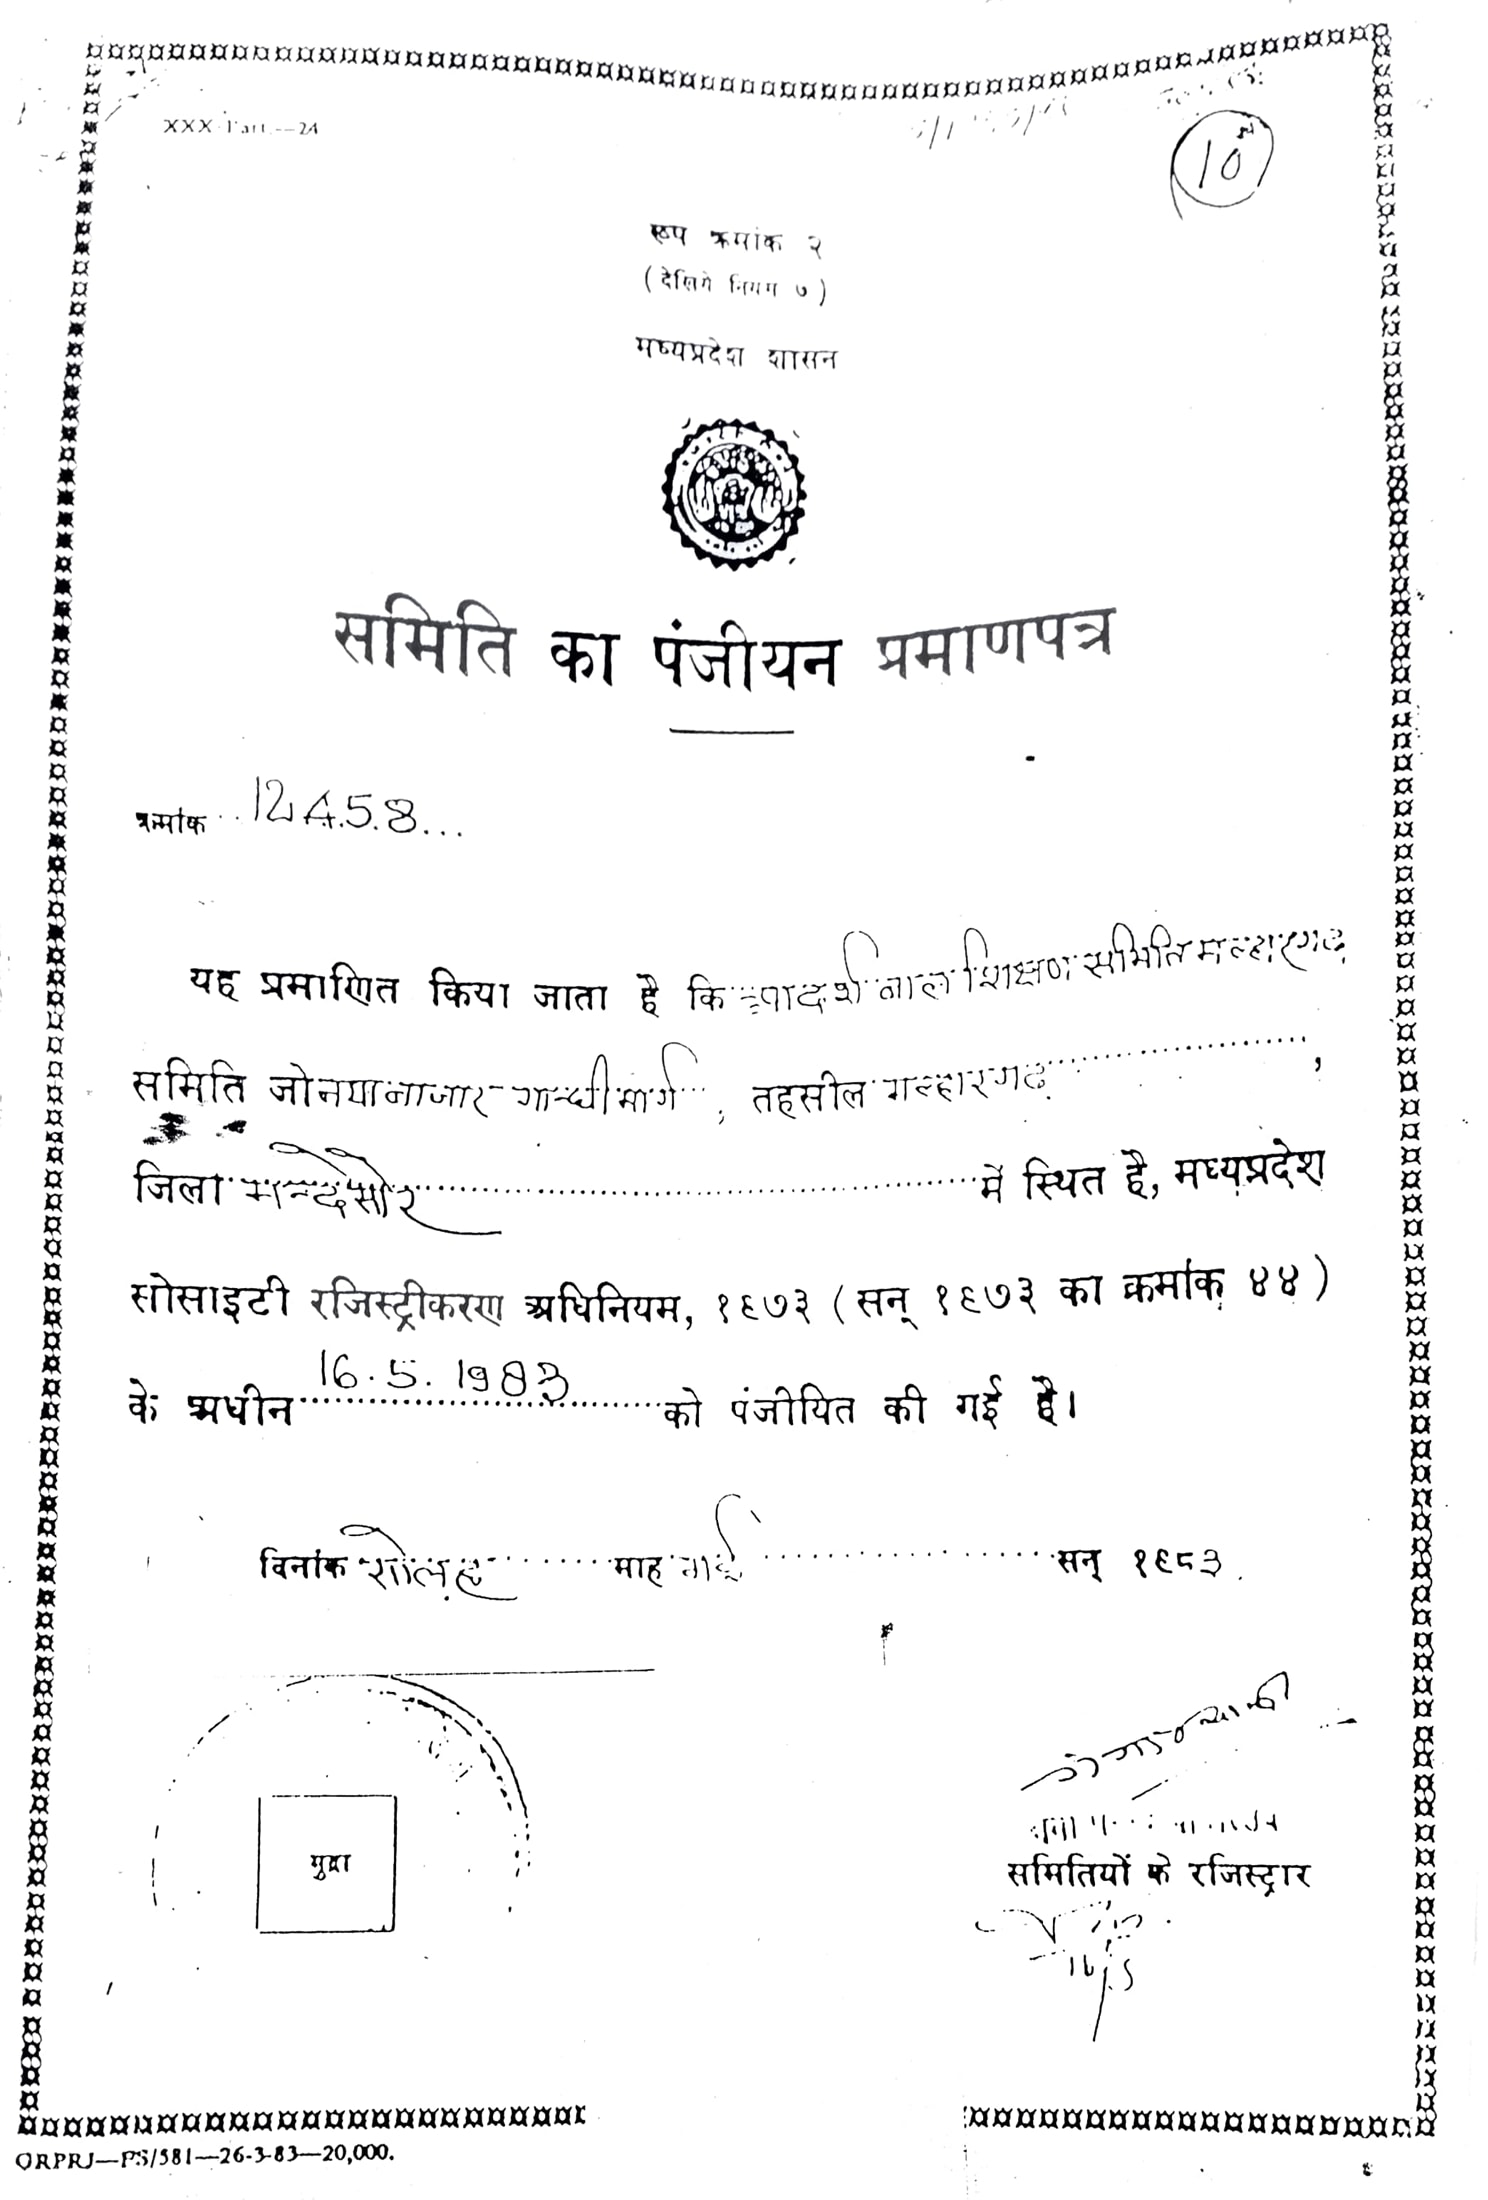 XXX Part—24
10
रूप क्रमांक २
(देखिये नियम ७)
मध्यप्रदेश शासन
समिति का पंजीयन प्रमाणपत्र
क्रमांक 12458
यह प्रमाणित किया जाता है कि आदर्श बाल शिक्षण समिति मल्हारगढ़
समिति जो नया बाजार गान्धी मार्ग, तहसील मल्हारगढ़,
जिला मन्दसौर में स्थित है, मध्यप्रदेश
सोसाइटी रजिस्ट्रीकरण अधिनियम, १९७३ (सन् १९७३ का क्रमांक ४४)
के अधीन 16.5.1983 को पंजीयित की गई है।
दिनांक सोलह माह मई सन् १९८३.
मुद्रा
समितियों के रजिस्ट्रार
QRPRJ—PS/581—26-3-83—20,000.